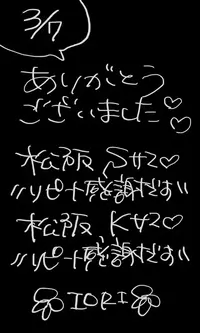 3/7
ありがとう
ございました♡♡
松阪 Sサン♡
〃リピート感謝だす〃
松阪 Kサン♡
〃リピート感謝だす〃
IORI